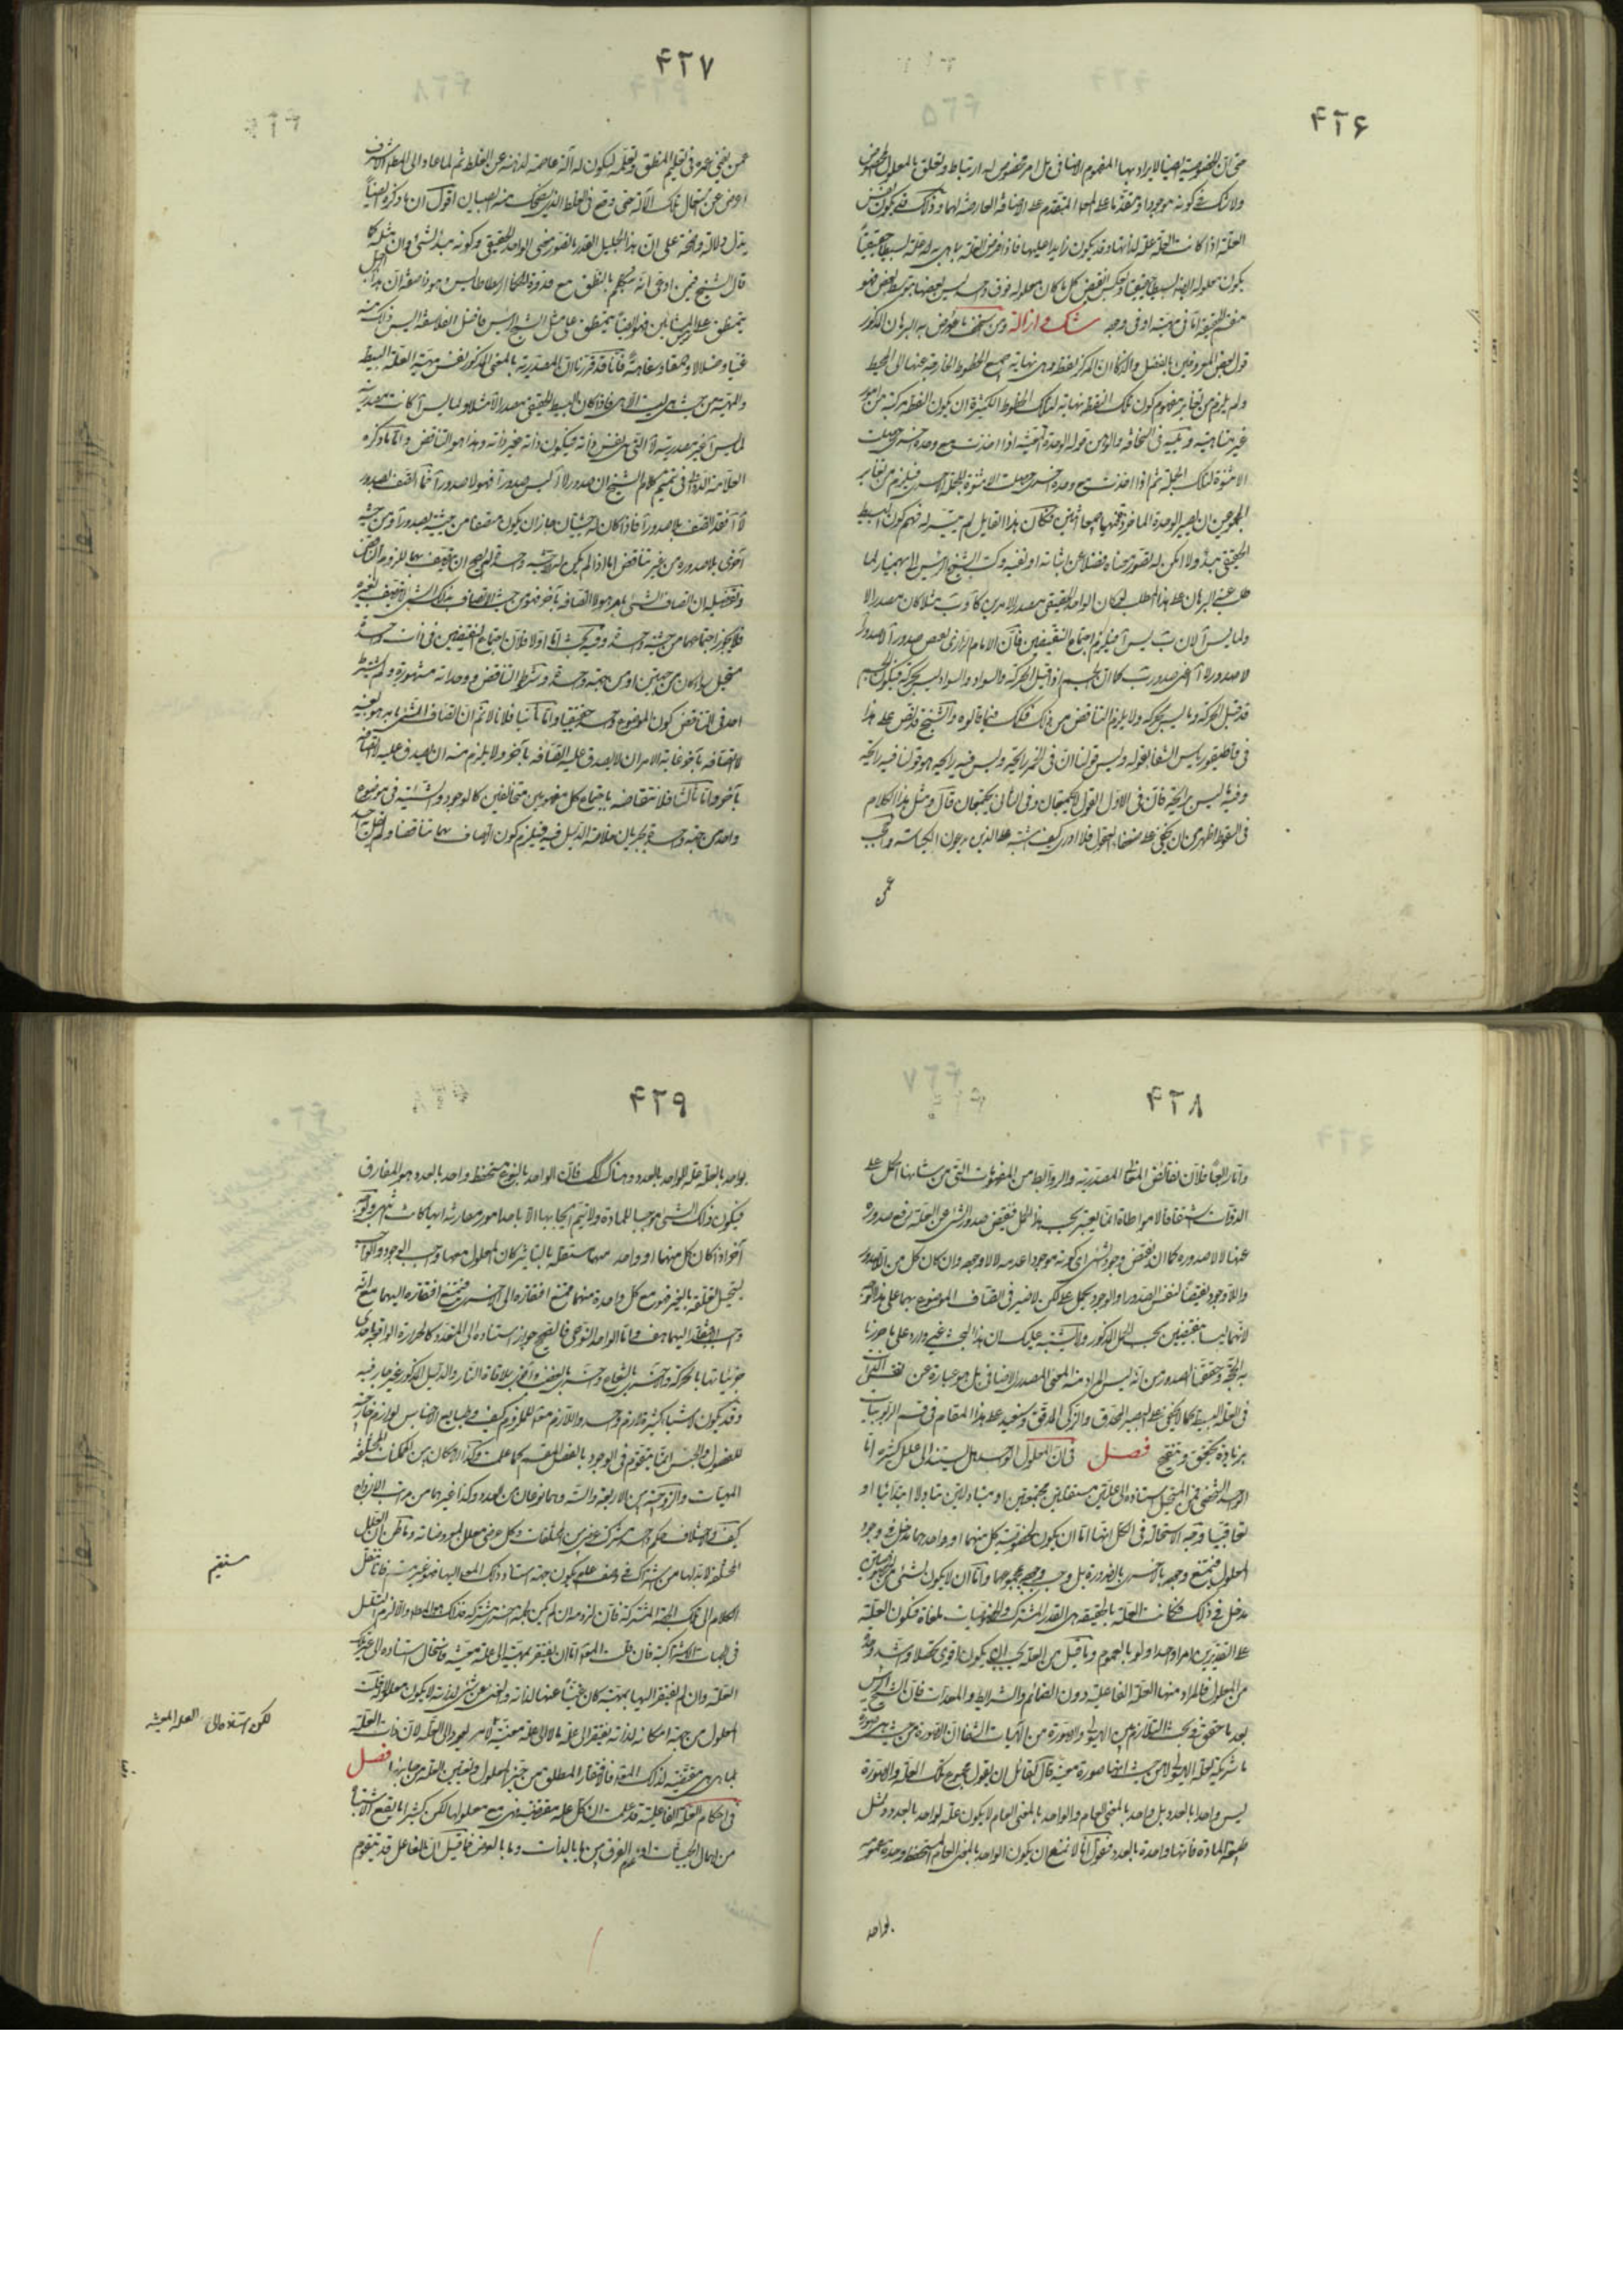 ۴۲۶
حتى ان الخصوصية ايضا لا يراد بها المفهوم الاضافى بل امر مخصوص له ارتباط وتعلق بالمعلول المخصوص
ولا شك فى كونه موجودا ومتقدما على المعلول المتقدم على الاضافة العارضة لهما وذلك قد يكون نفس
العلة اذا كانت العلة علة لذاتها وقد يكون زايدا عليها فاذا فرض العلة بما هى به علة بسيطا حقيقيا
يكون معلوله ايضا بسيطا حقيقيا وبعكس النقيض كل ما كان معلوله فوق واحد ليس بعضها بتوسط بعض فهو
منقسم الحقيقة اما فى مهيته او فى وجوده شك و ازالة ومن سخيف ما عورض به البرهان المذكور
قول بعض المعروفين بالفضل والذكاء ان المركز نقطة وهى نهاية جميع الخطوط الخارجة عنها الى المحيط
ولم يلزم من تغاير مفهوم كون تلك النقطة نهاية لتلك الخطوط الكثيرة ان يكون النقطة مركبة من امور
غير متناهية و شبيه فى السخافة والوهن قوله الوحدة المعينة اذا اخذت مع وحدة اخرى حصلت
الاثنوة لتلك الجملة ثم اذا اخذت مع وحدة اخرى حصلت الاثنوة لجملة اخرى فيلزم من تغاير
المجموعين ان يصير الوحدة الماخوذة فيهما جميعا اثنين فكان هذا القايل لم يتيسر له فهم كون البسيط
الحقيقى مبدء ولا امكن له تصور معناه فضلا عن اثباته او نفيه وكتب الشيخ الرئيس الى بهمنيار لما
طلب عنه البرهان على هذا المطلب لو كان الواحد الحقيقى مصدرا لامرين كآ و ب مثلا كان مصدرا لآ
ولما ليس آ لان ب ليس آ فيلزم اجتماع النقيضين قال الامام الرازى نقيض صدور آ لا صدور آ
لا صدور لا آ اعنى صدور ب كما ان الجسم اذا قبل الحركة والسواد والسواد ليس بحركة فيكون الجسم
قد قبل الحركة وما ليس بحركة ولا يلزم التناقض من ذلك فكذلك فيما قالوه والشيخ قد نص على هذا
فى قاطيغورياس الشفا بقوله وليس قولنا ان فى الخمر رايحة وليس فيه رايحة هو قولنا فيه رايحة
وفيه ما ليس برايحة فان فى الاول القولان لا يجتمعان وفى الثانى يجتمعان قال ومثل هذا الكلام
فى السقوط اظهر من ان يخفى على ضعفاء العقول فلا ادرى كيف اشتبه على الذين يدعون الكياسة والعجب
عمن
۴۲۷
عمن يفنى عمره فى تعليم المنطق وتعلمه ليكون له آلة عاصمة لذهنه عن الغلط ثم لما جاء الى المطلب الاشرف
اعرض عن استعمال تلك الآلة حتى وقع فى الغلط الذى يضحك منه الصبيان اقول ان ما ذكره ايضا
يدل دلالة واضحة على ان هذا الجليل القدر ما تصور معنى الواحد الحقيقى وكونه مبدء الشئ وان مثله كما
قال الشيخ فيمن ادعى انه يتكلم بالمنطق مع قدوة الحكماء ارسطاطاليس وهو واضعه ان هذا الرجل
يتمنطق على المشائين فهو ايضا يتمنطق على مثل الشيخ الرئيس فاضل الفلاسفة اليس ذلك منه
غيا وضلالا وحمقا وسفاهة فانا قد قررنا ان المصدرية بالمعنى المذكور نفس مهية العلة البسيطة
والمهية من حيث هى ليست الا هى فاذا كان البسيط الحقيقى مصدرا لآ مثلا ولما ليس آ كانت مصدريته
لما ليس آ غير مصدريته لآ التى هى نفس ذاته فيكون ذاته غير ذاته وهذا هو التناقض واما ما ذكره
العلامة الدوانى فى تتميم كلام الشيخ ان صدور لا آ ليس صدور آ فهو لا صدور آ فما اتصف بصدور
لا آ فقد اتصف بلا صدور آ فاذا كان له حيثيتان جاز ان يكون متصفا من حيثية بصدور آ ومن حيثية
اخرى بلا صدوره من غير تناقض اما اذا لم يكن الا حيثية واحدة لم يصح ان يتصف بهما للزوم التناقض
وتفصيله ان اتصاف الشئ بامر هو لا اتصافه بآخر فهو من حيث الاتصاف بذلك الشئ لا يتصف بغيره
فلا يجوز اجتماعهما من حيثية واحدة وفيه بحث اما اولا فلان اجتماع النقيضين فى ذات واحدة
مستحيل سواء كان من جهتين او من جهة واحدة وشرايط التناقض ووحداته مشهورة ولم يشترط
احد فى التناقض كون الموضوع واحدا حقيقيا واما ثانيا فلانا لا نم ان اتصاف الشئ بامر هو بعينه
لا اتصافه بآخر غاية الامر ان لا يصدق عليه اتصافه بآخر ولا يلزم منه ان يصدق عليه لا اتصافه
بآخر واما ثالثا فلانتقاضه باجتماع كل مفهومين متخالفين كالوجود والشيئية فى موضوع
واحد من جهة واحدة بجريان خلاصة الدليل فيه فيلزم كون اتصافه بهما تناقضا ولم يقل به احد
۴۲۸
واما رابعا فلان نقائض المعانى المصدرية والروابط من المفهومات التى من شانها الحمل على
الذوات اشتقاقا لا مواطاة انما يعتبر بحسب هذا الحمل فنقيض صدور الشئ عن العلة رفع صدوره
عنها لا لا صدوره كما ان نقيض وجود شئ اى كونه موجودا عدمه لا لا وجوده وان كان كل من اللاصدور
واللاوجود نقيضا لنفس الصدور او الوجود بحمل على لكن لا ضير فى اتصاف الموضوع بهما على هذا الوجه
لانهما ليسا بنقيضين بحسب الحمل المذكور ولا يشتبه عليك ان هذا البحث غير وارد على ما حررنا
به الحجة وحققنا الصدور من انه ليس المراد منه المعنى المصدرى الاضافى بل هو عبارة عن نفس الذات
فى العلة البسيطة كما لا يخفى على البصير المحدق والذكى المدقق وسنعيد على هذا المقام فى قسم الربوبيات
بزيادة تحقيق وتنقيح فصل فى ان المعلول الواحد هل يستند الى علل كثيرة اما
الواحد الشخصى فمن المستحيل استناده الى علتين مستقلتين مجتمعتين او متبادلتين تبادلا ابتدائيا او
تعاقبيا ووجه الاستحالة فى الكل انها اما ان يكون لخصوصية كل منهما او واحد هما مدخل فى وجود
المعلول فيمتنع وجوده بالاخرى بالضرورة بل وجب وجوده بمجموعهما واما ان لا يكون لشئ من الخصوصيتين
مدخل فى ذلك فكانت العلة بالحقيقة هى القدر المشترك والخصوصيات ملغاة فتكون العلة
على التقديرين امرا واحدا ولو بالعموم وما قيل من ان العلة يجب ان يكون اقوى تحصلا واشد وحدة
من المعلول فالمراد منها العلة الفاعلية دون الضمائم والشرايط والمعدات قال الشيخ الرئيس
بعد ما حقق فى بحث التلازم بين الهيولى والصورة من الهيات الشفا ان الصورة من حيث هى صورة
ما شريكة لعلة الهيولى لا من حيث انها صورة معينة قال لقائل ان يقول مجموع تلك العلة والصورة
ليس واحدا بالعدد بل واحد بالمعنى العام والواحد بالمعنى العام لا يكون علة لواحد بالعدد ومثل
طبيعة المادة فانها واحدة بالعدد فنقول انا لا نمنع ان يكون الواحد بالمعنى العام المستحفظ وحدة عمومه
بواحد
۴۲۹
بواحد بالعدد علة للواحد بالعدد وهناك كذلك فان الواحد بالنوع مستحفظ واحد بالعدد هو المفارق
فيكون ذلك الشئ موجبا للمادة ولا يتم ايجابها الا باحد امور مقارنة ايها كانت انتهى وبوجه
آخر اذا كان كل منهما او واحد منهما مستقلة بالتاثير كان المعلول معها واجب الوجود والواجب
يستحيل تعلقه بالغير فهو مع كل واحدة منهما ممتنع افتقاره الى الاخرى فيمتنع افتقاره اليهما مع انه
وجب افتقاره اليهما هف واما الواحد النوعى فالصحيح جواز استناده الى المتعدد كالحرارة الواقعة احدى
جزئياتها بالحركة واخرى بالشعاع واخرى بالغضب واخرى بملاقاة النار والدليل المذكور غير جار فيه
وقد يكون لاشياء كثيرة لازم واحد واللازم معلول للملزوم كيف وطبايع الاجناس لوازم خارجية
للفصول والجنس انما يتقوم فى الوجود بالفصل المقسم كما علمت وكذا الامكان من الممكنات المختلفة
المهيات والزوجية من الاربعة والستة وهما نوعان من العدد وكذا غيرهما من مراتب الازواج
كيف واختلاف حكم واحد مشترك عرضى بين المختلفات وكل عرضى معلل لمعروضاته وما ظن ان العلل
المختلفة لابد لها من اشتراك فى وصف عام يكون جهة استناد ذلك المعلول اليها فهو غير مستقيم فانا ننقل
الكلام الى تلك الجهة المشتركة فان لزومها ان لم يكن لجهة اخرى مشتركة فذلك هو المطلوب والا لزم التسلسل
فى الجهات الاشتراكية فان قلت المعلول اما ان يفتقر بمهيته الى علة معينة فاستحال استناده الى غير تلك
العلة وان لم يفتقر اليها بمهيته كان غنيا عنها لذاته والغنى عن شئ لذاته لا يكون معلولا له قلت
المعلول من جهة امكانه لذاته يفتقر الى علة ما لا الى علة معينة لامر يعود الى العلة لان ذات العلة
بما هى هى مقتضية لذلك المعلول فالافتقار المطلق من حيز المعلول وتعيين العلة من جانبها فصل
فى احكام العلة الفاعلية قد علمت ان كل علة مقتضية فهى مع معلولها لكن كثيرا ما يقع الاشتباه
من اهمال الحيثيات او عدم الفرق بين ما بالذات وما بالعرض فما قيل ان الفاعل قد يتقدم
مستقيم
لكن استناده الى العلة المعينة